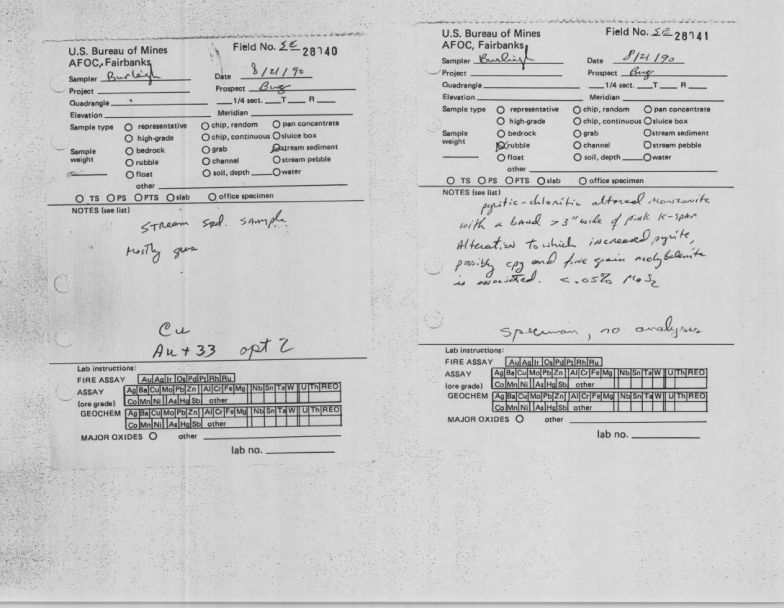 U.S. Bureau of Mines
AFOC, Fairbanks
Field No. SE 28140
Sampler Burleigh
Date 8/21/90
Project
Prospect Bug
Quadrangle
1/4 sect. T R
Elevation
Meridian
Sample type
representative
chip, random
pan concentrate
high-grade
chip, continuous
sluice box
Sample weight
bedrock
grab
stream sediment
rubble
channel
stream pebble
float
soil, depth
water
other
TS PS PTS slab office specimen
NOTES (see list)
Stream sed. sample
Mostly
Cu
Au + 33 opt 2
Lab instructions:
FIRE ASSAY Au Ag Ir Os Pd Pt Rh Ru
ASSAY Ag Ba Cu Mo Pb Zn Al Cr Fe Mg Nb Sn Ta W U Th REO
(ore grade) Co Mn Ni As Hg Sb other
GEOCHEM Ag Ba Cu Mo Pb Zn Al Cr Fe Mg Nb Sn Ta W U Th REO
Co Mn Ni As Hg Sb other
MAJOR OXIDES other
lab no.
U.S. Bureau of Mines
AFOC, Fairbanks
Field No. SE 28141
Sampler Burleigh
Date 8/21/90
Project
Prospect Bug
Quadrangle
1/4 sect. T R
Elevation
Meridian
Sample type
representative
chip, random
pan concentrate
high-grade
chip, continuous
sluice box
Sample weight
bedrock
grab
stream sediment
rubble
channel
stream pebble
float
soil, depth
water
other
TS PS PTS slab office specimen
NOTES (see list)
pyritic-chloritic altered monzonite
with a band >3" wide of pink K-spar
Alteration to which increased pyrite,
possibly cpy and fine grain molybdenite
is associated. <.05% MoS2
specimen, no analyses
Lab instructions:
FIRE ASSAY Au Ag Ir Os Pd Pt Rh Ru
ASSAY Ag Ba Cu Mo Pb Zn Al Cr Fe Mg Nb Sn Ta W U Th REO
(ore grade) Co Mn Ni As Hg Sb other
GEOCHEM Ag Ba Cu Mo Pb Zn Al Cr Fe Mg Nb Sn Ta W U Th REO
Co Mn Ni As Hg Sb other
MAJOR OXIDES other
lab no.